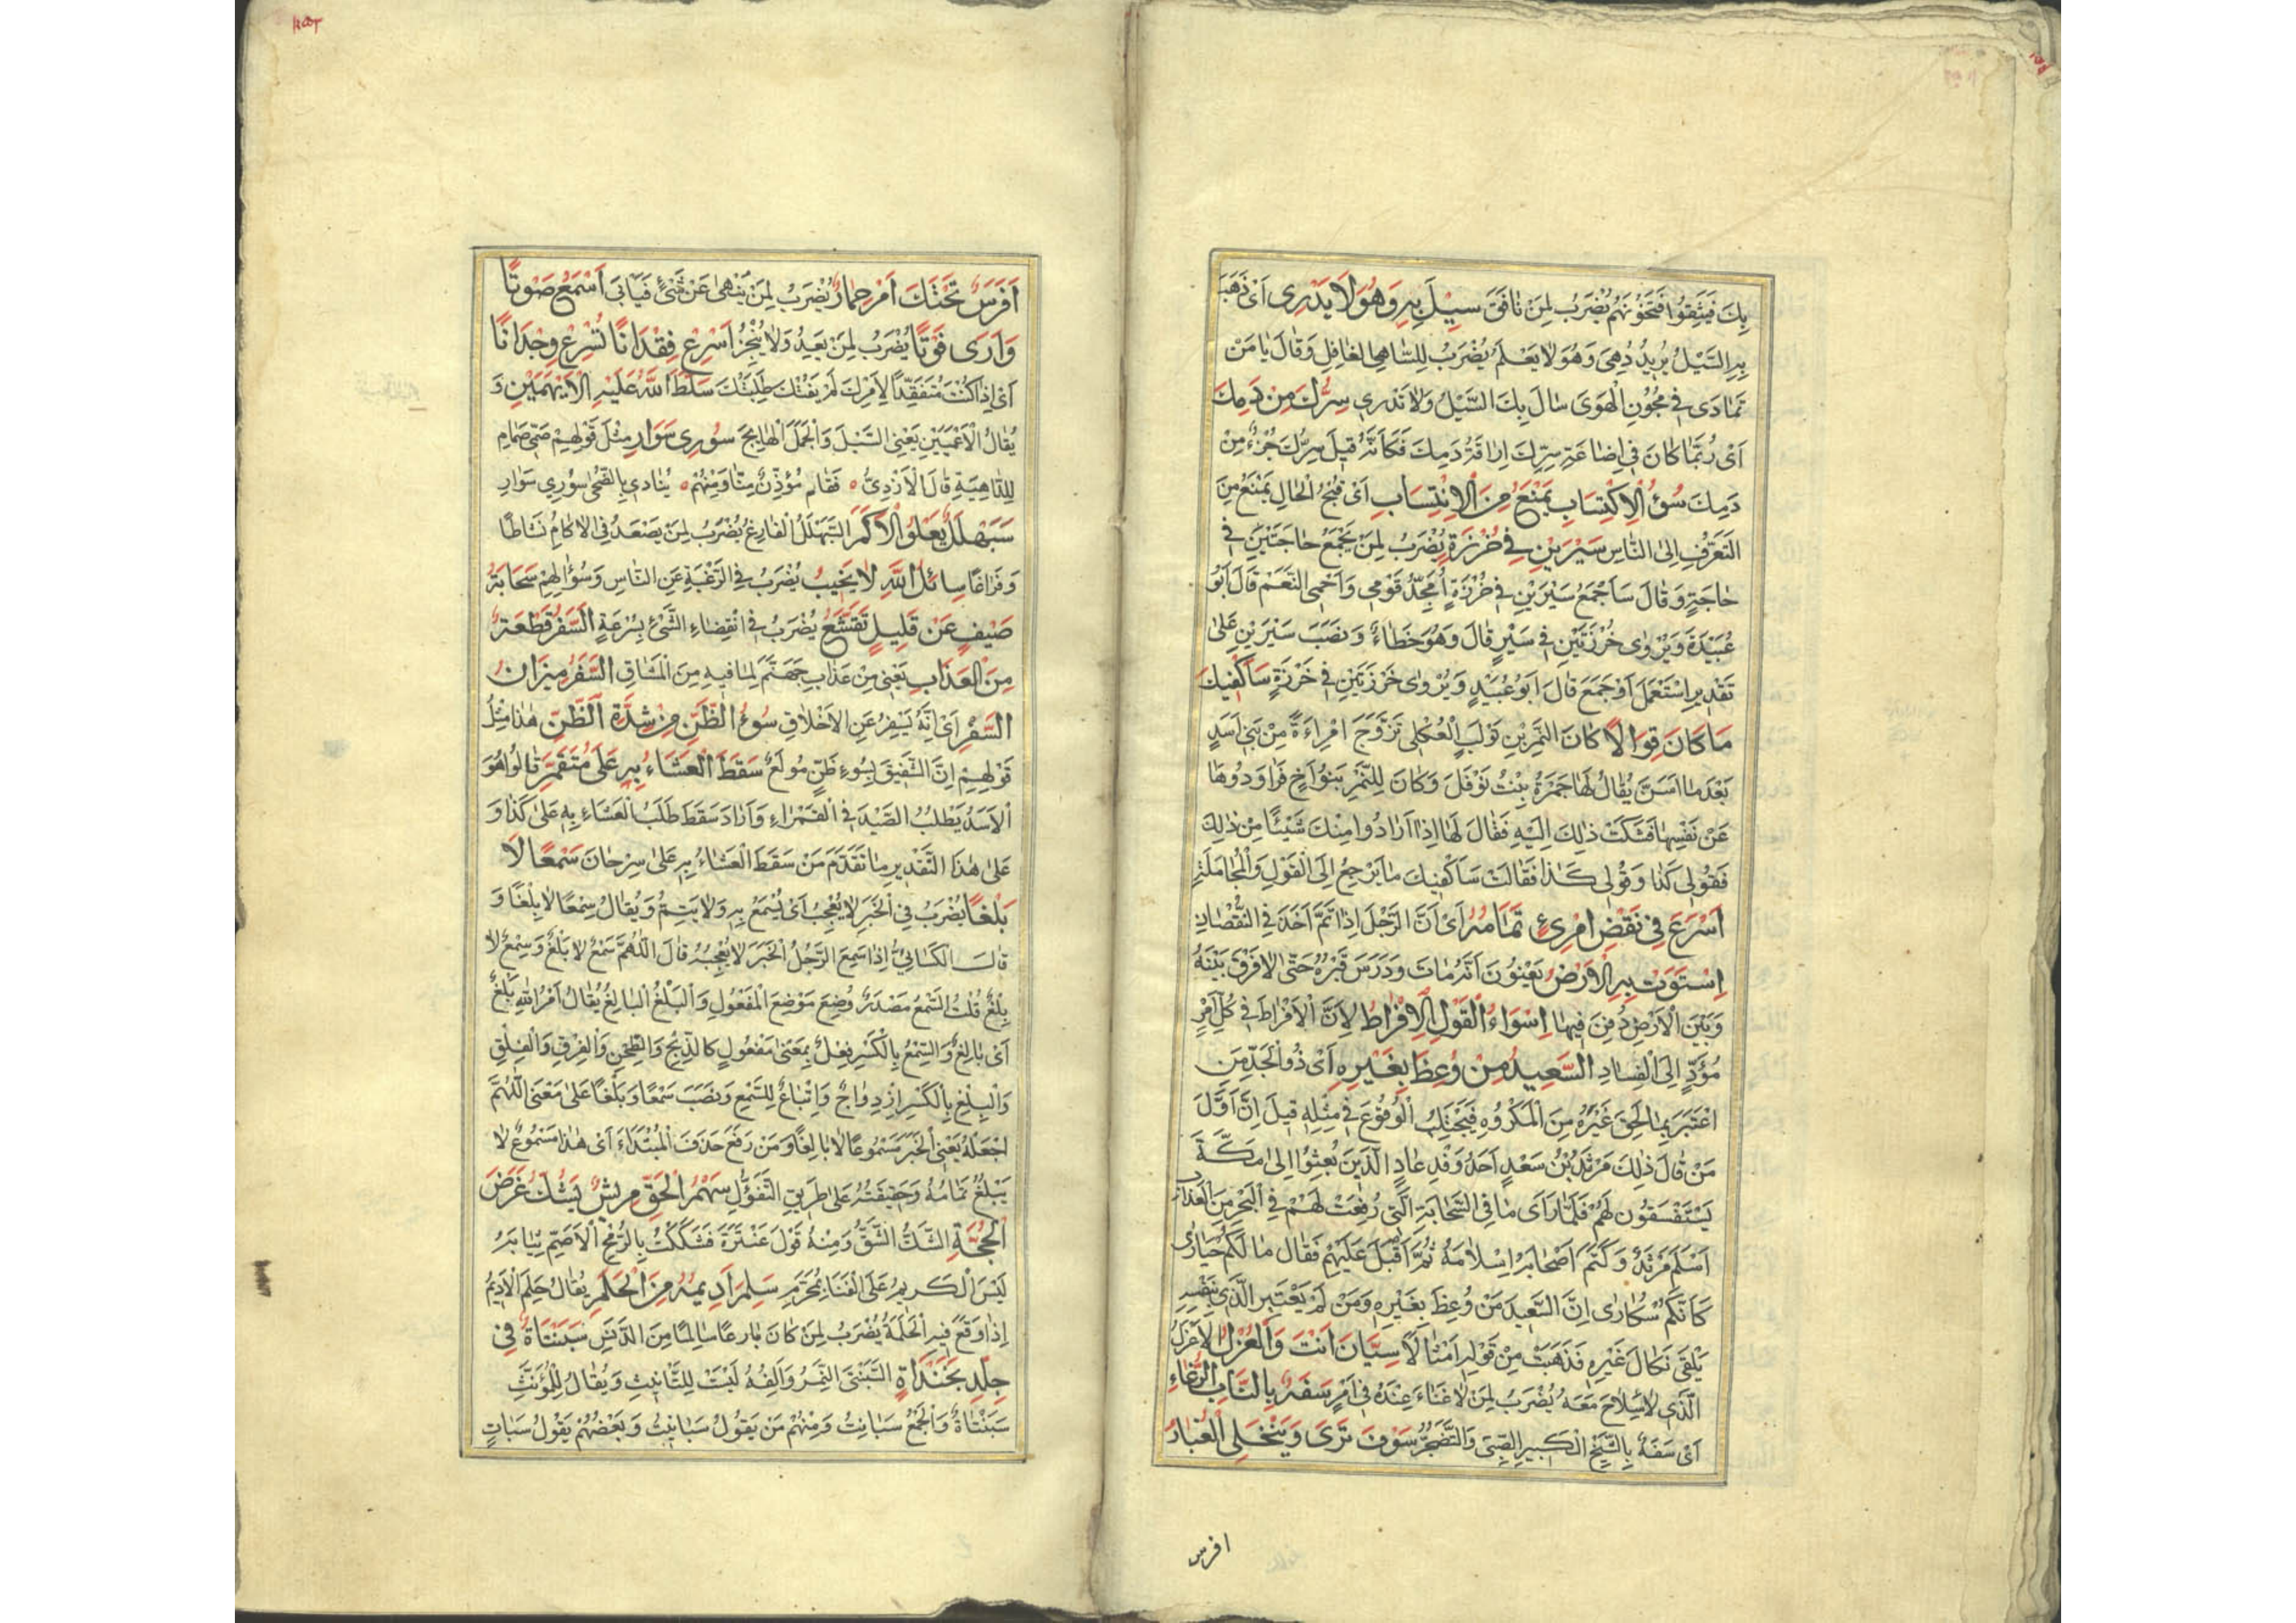 بِكَ فَيَثِقُوا فَتَخُونَهُمْ يُضْرَبُ لِمَنْ نَافَقَ سِيْلَ بِهِ وَهُوَ لَا يَدْرِى اَىْ ذَهَبَ
بِهِ السَّيْلُ يُرِيدُ دُهِىَ وَهُوَ لَا يَعْلَمُ يُضْرَبُ لِلسَّاهِى الْغَافِلِ وَقَالَ يَا مَنْ
تَمَادَى فِى مُجُونِ الْهَوَى سَالَ بِكَ السَّيْلُ وَلَا تَدْرِى سِرُّكَ مِنْ دَمِكَ
اَىْ رُبَّمَا كَانَ فِى اِضَاعَةِ سِرِّكَ اِرَاقَةُ دَمِكَ فَكَاَنَّهُ قِيلَ سِرُّكَ جُزْءٌ مِنْ
دَمِكَ سُوْءُ الْاِكْتِسَابِ يَمْنَعُ مِنَ الْاِنْتِسَابِ اَىْ قُبْحُ الْحَالِ يَمْنَعُ مِنَ
التَّعَرُّفِ اِلَى النَّاسِ سَيْرَيْنِ فِى خُرْزَةٍ يُضْرَبُ لِمَنْ يَجْمَعُ حَاجَتَيْنِ فِى
حَاجَةٍ وَقَالَ سَاَجْمَعُ سَيْرَيْنِ فِى خُرْزَةٍ اُمَجِّدُ قَوْمِى وَاَحْمِى النَّعَمْ قَالَ اَبُو
عُبَيْدَةَ وَيُرْوٰى خُرْزَتَيْنِ فِى سَيْرٍ قَالَ وَهُوَ خَطَاءٌ وَنَصَبَ سَيْرَيْنِ عَلَى
تَقْدِيرِ اسْتَعْمَلَ اَوْ جَمَعَ قَالَ اَبُو عُبَيْدٍ وَيُرْوٰى خَرْزَتَيْنِ فِى خَرْزَةٍ سَاَكْفِيكَ
مَا كَانَ قِوَالًا كَانَ النَّمِرُ بْنُ تَوْلَبٍ الْعُكْلِى تَزَوَّجَ امْرِاَةً مِنْ بَنِى اَسَدٍ
بَعْدَ مَا اَسَنَّ يُقَالُ لَهَا جَمْرَةُ بِنْتُ نَوْفَلَ وَكَانَ لِلنَّمِرِ بَنُوا اَخٍ فَرَاوَدُوهَا
عَنْ نَفْسِهَا فَشَكَتْ ذٰلِكَ اِلَيْهِ فَقَالَ لَهَا اِذَا اَرَادُوا مِنْكَ شَيْئًا مِنْ ذٰلِكَ
فَقُولِى كَذَا وَقُولِى كَذَا فَقَالَتْ سَاَكْفِيكَ مَا يَرْجِعُ اِلَى الْقَوْلِ وَالْمُجَامَلَةِ
اَسْرَعَ فِى نَقْضِ امْرِئٍ تَمَامُهُ اَىْ اَنَّ الرَّجُلَ اِذَا تَمَّ اَخَذَ فِى النُّقْصَانِ
اِسْتَوَتْ بِهِ الْاَرْضُ يَعْنُونَ اَنَّهُ مَاتَ وَدَرَسَ قَبْرُهُ حَتّٰى لَا فَرْقَ بَيْنَهُ
وَبَيْنَ الْاَرْضِ دُفِنَ فِيهَا اَسْوَاءُ الْقَوْلِ الْاِفْرَاطُ لِاَنَّ الْاِفْرَاطَ فِى كُلِّ اَمْرٍ
مُؤَدٍّ اِلَى الْفَسَادِ السَّعِيدُ مَنْ وُعِظَ بِغَيْرِهِ اَىْ ذُو الْجَدِّ مَنِ
اعْتَبَرَ بِمَا لَحِقَ غَيْرَهُ مِنَ الْمَكْرُوهِ فَيَجْتَنِبُ الْوُقُوعَ فِى مِثْلِهِ قِيلَ اِنَّ اَوَّلَ
مَنْ قَالَ ذٰلِكَ مَرْثَدُ بْنُ سَعْدٍ اَحَدُ وَفْدِ عَادٍ الَّذِينَ بُعِثُوا اِلٰى مَكَّةَ
يَسْتَسْقُونَ لَهُمْ فَلَمَّا رَاَى مَا فِى السَّحَابَةِ الَّتِى رُفِعَتْ لَهُمْ فِى الْبَحْرِ مِنَ الْعَذَابِ
اَسْلَمَ مَرْثَدٌ وَكَتَمَ اَصْحَابَهُ اِسْلَامَهُ ثُمَّ اَقْبَلَ عَلَيْهِمْ فَقَالَ مَا لَكُمْ حَيَارٰى
كَاَنَّكُمْ سُكَارٰى اِنَّ السَّعِيدَ مَنْ وُعِظَ بِغَيْرِهِ وَمَنْ لَمْ يَعْتَبِرِ الَّذِى بِنَفْسِهِ
يَلْقَى نَكَالَ غَيْرِهِ فَذَهَبَتْ مِنْ قَوْلِهِ اَمْثَالًا سِيَّانَ اَنْتَ وَالْعُزْلُ الْاَعْزَلُ
الَّذِى لَا سِلَاحَ مَعَهُ يُضْرَبُ لِمَنْ لَا غَنَاءَ عِنْدَهُ فِى اَمْرٍ سَفَهٌ بِالنَّابِ الرُّغَاءُ
اَىْ سَفَهٌ بِالشَّيْخِ الْكَبِيرِ الصِّبَى وَالتَّضَجُّرُ سَوْفَ تَرَى وَيَنْجَلِى الْغُبَارُ
افرس
اَفَرَسٌ تَحْتَكَ اَمْ حِمَارٌ يُضْرَبُ لِمَنْ يُنْهٰى عَنْ شَىْءٍ فَيَاْبَى اَسْمَعُ صَوْتًا
وَاَرَى فَوْتًا يُضْرَبُ لِمَنْ يَعِدُ وَلَا يُنْجِزُ اَسْرِعْ فِقْدَانًا تُسْرِعْ وِجْدَانًا
اَىْ اِذَا كُنْتَ مُتَفَقِّدًا لِاَمْرِكَ لَمْ يَفُتْكَ طَلِبَتُكَ سَلَّطَ اللّٰهُ عَلَيْهِ الْاَيْهَمَيْنِ وَ
يُقَالُ الْاَعْمَيَيْنِ يَعْنِى السَّيْلَ وَالْجَمَلَ الْهَايِجَ سُورِى سَوَارِ مِثْلَ قَوْلِهِمْ صَمِّى صَمَامِ
لِلدَّاهِيَةِ قَالَ الْاَزْدِىُّ فَقَامَ مُؤَذِّنٌ مِنَّا وَمِنْهُمْ يُنَادِى بِالضُّحٰى سُورِى سَوَارِ
سَبَهْلَلٌ يَعْلُو الْاَكَمَ السَّبَهْلَلُ الْفَارِغُ يُضْرَبُ لِمَنْ يَصْعَدُ فِى الْاٰكَامِ نَشَاطًا
وَفَرَاغًا سِائِلُ اللّٰهِ لَا يَخِيبُ يُضْرَبُ فِى الرَّغْبَةِ عَنِ النَّاسِ وَسُؤَالِهِمْ سَحَابَةُ
صَيْفٍ عَنْ قَلِيلٍ تَقَشَّعُ يُضْرَبُ فِى انْقِضَاءِ الشَّىْءِ بِسُرْعَةٍ اَلسَّفَرُ قِطْعَةٌ
مِنَ الْعَذَابِ يَعْنِى مِنْ عَذَابِ جَهَنَّمَ لِمَا فِيهِ مِنَ الْمَشَاقِّ السَّفَرُ مِيزَانُ
السَّفْرِ اَىْ اَنَّهُ يُسْفِرُ عَنِ الْاَخْلَاقِ سُوْءُ الظَّنِّ مِنْ شِدَّةِ الظَّنِّ هٰذَا مِثْلُ
قَوْلِهِمْ اِنَّ الشَّفِيقَ بِسُوءِ ظَنٍّ مُولَعٌ سَقَطَ الْعَشَاءُ بِهِ عَلَى مُتَقَمِّرٍ قَالُوا هُوَ
الْاَسَدُ يَطْلُبُ الصَّيْدَ فِى الْقَمْرَاءِ وَاَرَادَ سَقَطَ طَلَبُ الْعَشَاءِ بِهِ عَلَى كَذَا وَ
عَلٰى هٰذَا التَّقْدِيرِ مَا تَقَدَّمَ مَنْ سَقَطَ الْعَشَاءُ بِهِ عَلٰى سِرْحَانَ سَمْعًا لَا
بَلْغًا يُضْرَبُ فِى الْخَبَرِ لَا يُعْجِبُ اَىْ يُسْمَعُ بِهِ وَلَا يَتِمُّ وَيُقَالُ سِمْعًا لَا بِلْغًا وَ
قَالَ الْكِسَائِىُّ اِذَا سَمِعَ الرَّجُلُ الْخَبَرَ لَا يُعْجِبُهُ قَالَ اللّٰهُمَّ سَمْعٌ لَا بَلْغٌ وَسِمْعٌ لَا
بِلْغٌ قُلْتُ السَّمْعُ مَصْدَرٌ وُضِعَ مَوْضِعَ الْمَفْعُولِ وَالْبَلْغُ الْبَالِغُ يُقَالُ اَمْرُ اللّٰهِ بَلْغٌ
اَىْ بَالِغٌ وَالسِّمْعُ بِالْكَسْرِ فِعْلٌ بِمَعْنٰى مَفْعُولٍ كَالذِّبْحِ وَالطِّحْنِ وَالْفِرْقِ وَالْفِلْقِ
وَالْبِلْغِ بِالْكَسْرِ اِزْدِوَاجٌ وَاِتْبَاعٌ لِلسِّمْعِ وَنَصَبَ سَمْعًا وَبَلْغًا عَلٰى مَعْنَى اللّٰهُمَّ
اجْعَلْهُ يَعْنِى الْخَبَرَ مَسْمُوعًا لَا بَالِغًا وَمَنْ رَفَعَ حَذَفَ الْمُبْتَدَاءَ اَىْ هٰذَا مَسْمُوعٌ لَا
يَبْلُغُ تَمَامَهُ وَحَقِيقَتَهُ عَلٰى طَرِيقِ التَّفَؤُّلِ سَهْمُ الْحَقِّ مَرِيشٌ يَشُكُّ غَرَضَ
الْحُجَّةِ الشَّكُّ الشَّقُّ وَمِنْهُ قَوْلُ عَنْتَرَةَ فَشَكَكْتُ بِالرُّمْحِ الْاَصَمِّ ثِيَابَهُ
لَيْسَ الْكَرِيمُ عَلَى الْقَنَا بِمُحَرَّمِ سَلِمَ اَدِيمُهُ مِنَ الْحَلَمِ يُقَالُ حَلِمَ الْاَدِيمُ
اِذَا وَقَعَ فِيهِ الْحَلَمَةُ يُضْرَبُ لِمَنْ كَانَ بَارِعًا سَالِمًا مِنَ الدَّنَسِ سَبَنْتَاةٌ فِى
جِلْدِ بَخَنْدَاةٍ السَّبَنْتَى النَّمِرُ وَاَلِفُهُ لَيْسَتْ لِلتَّانِيثِ وَيُقَالُ لِلْمُؤَنَّثِ
سَبَنْتَاةٌ وَالْجَمْعُ سَبَانِتُ وَمِنْهُمْ مَنْ يَقُولُ سَبَانِيتُ وَبَعْضُهُمْ يَقُولُ سَبَاتٍ